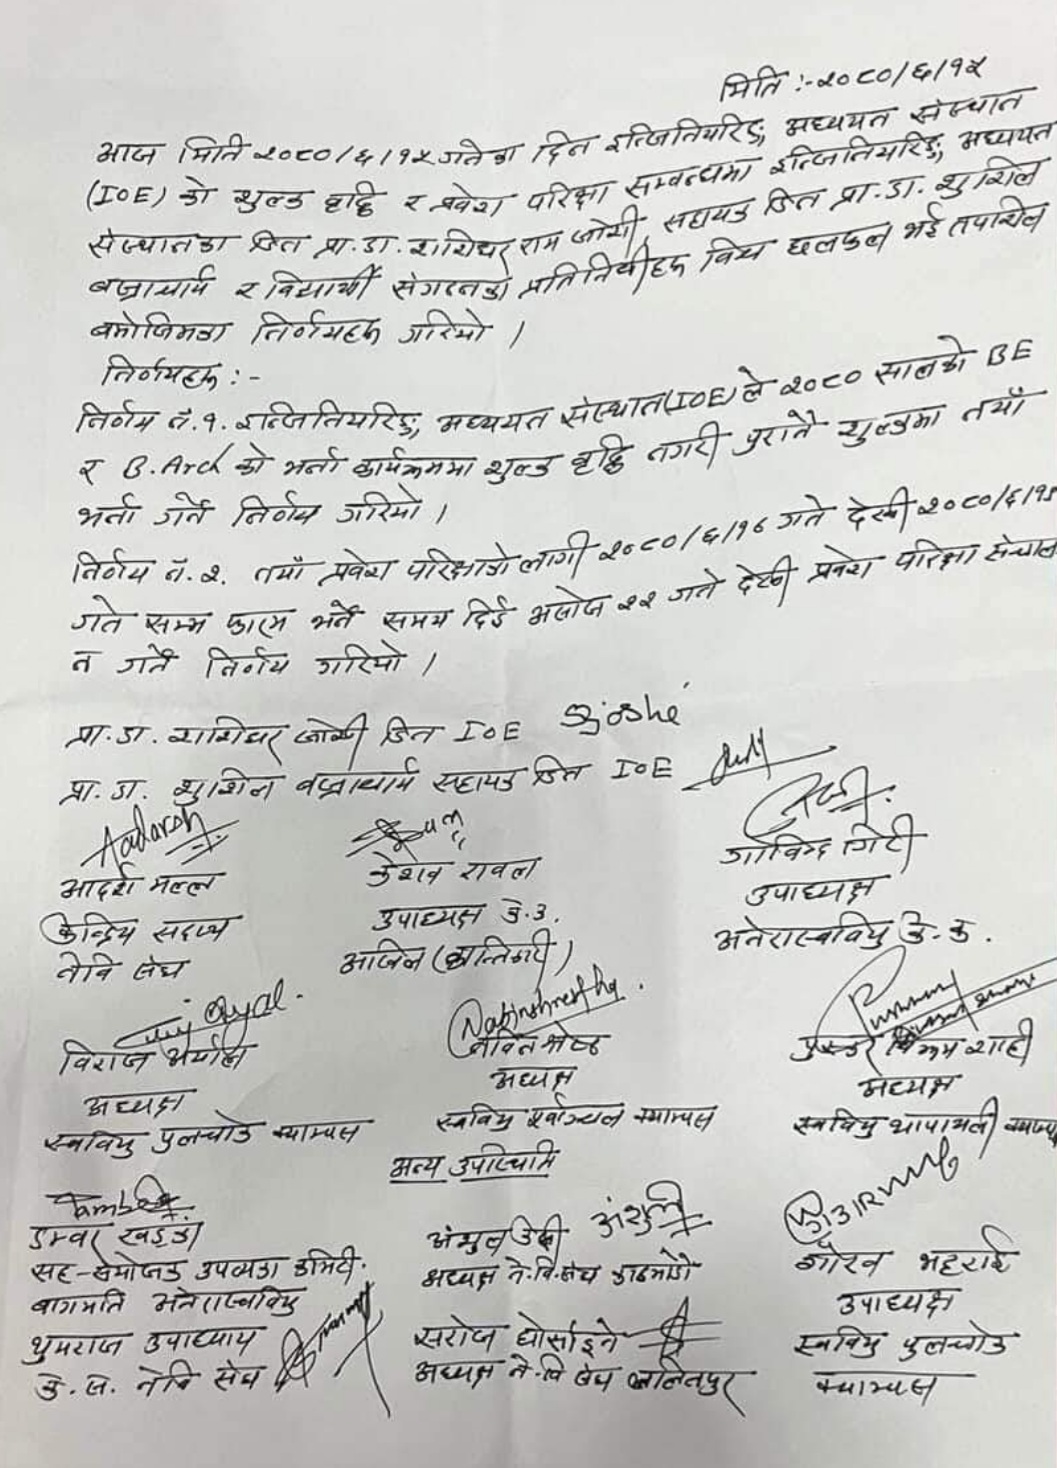 मिति :- २०८०/६/१५
आज मिति २०८०/६/१५ गतेका दिन इन्जिनियरिङ्ग अध्ययन संस्थान
(IOE) को शुल्क वृद्धि र प्रवेश परिक्षा सम्वन्धमा इन्जिनियरिङ्ग अध्ययन
संस्थानका डिन प्रा.डा. शशिधर राम जोशी, सहायक डिन प्रा.डा. शुशिल
बज्राचार्य र विद्यार्थी संगठनका प्रतिनिधीहरू विच छलफल भई तपाशिल
बमोजिमका निर्णयहरू गरियो ।
निर्णयहरू :-
निर्णय नं. १. इन्जिनियरिङ्ग अध्ययन संस्थान (IOE) ले २०८० सालको BE
र B.Arch को भर्ना कार्यक्रममा शुल्क वृद्धि नगरी पुरानै शुल्कमा नयाँ
भर्ना गर्ने निर्णय गरियो ।
निर्णय नं. २. नयाँ प्रवेश परिक्षाको लागी २०८०/६/१६ गते देखी २०८०/६/१८
गते सम्म फारम भर्ने समय दिई असोज २२ गते देखी प्रवेश परिक्षा संचाल
न गर्ने निर्णय गरियो ।
प्रा.डा. शशिधर जोशी डिन IOE Sjoshi
प्रा.डा. शुशिल बज्राचार्य सहायक डिन IOE
Aadarsh
आदर्श मल्ल
केन्द्रिय सदस्य
नेवि संघ
केशव रावल
उपाध्यक्ष के.उ.
अखिल (क्रान्तिकारी)
गोविन्द गिरी
उपाध्यक्ष
अनेरास्ववियु के.क.
विराज अर्याल
अध्यक्ष
स्ववियु पुलचोक क्याम्पस
Nabinshrestha
नविन श्रेष्ठ
अध्यक्ष
स्ववियु पूर्वाञ्चल क्याम्पस
पुस्कर विक्रम शाही
अध्यक्ष
स्ववियु थापाथली क्याम्पस
अन्य उपस्थिति
डम्वर खड्का
सह-संयोजक उपत्यका कमिटी
बागमति अनेरास्ववियु
अध्यक्ष ने.वि.संघ काठमाडौं
गौरव भट्टराई
उपाध्यक्ष
स्ववियु पुलचोक
क्याम्पस
उपाध्याय
के.स. नेवि संघ
सरोज घोर्साइने
अध्यक्ष ने.वि संघ ललितपुर